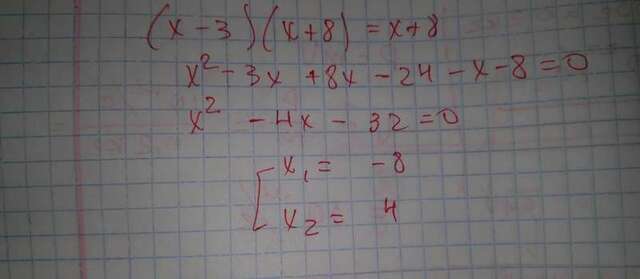 (x-3)(x+8) = x+8
x² - 3x + 8x - 24 - x - 8 = 0
x² - 4x - 32 = 0
x₁ = -8
x₂ = 4